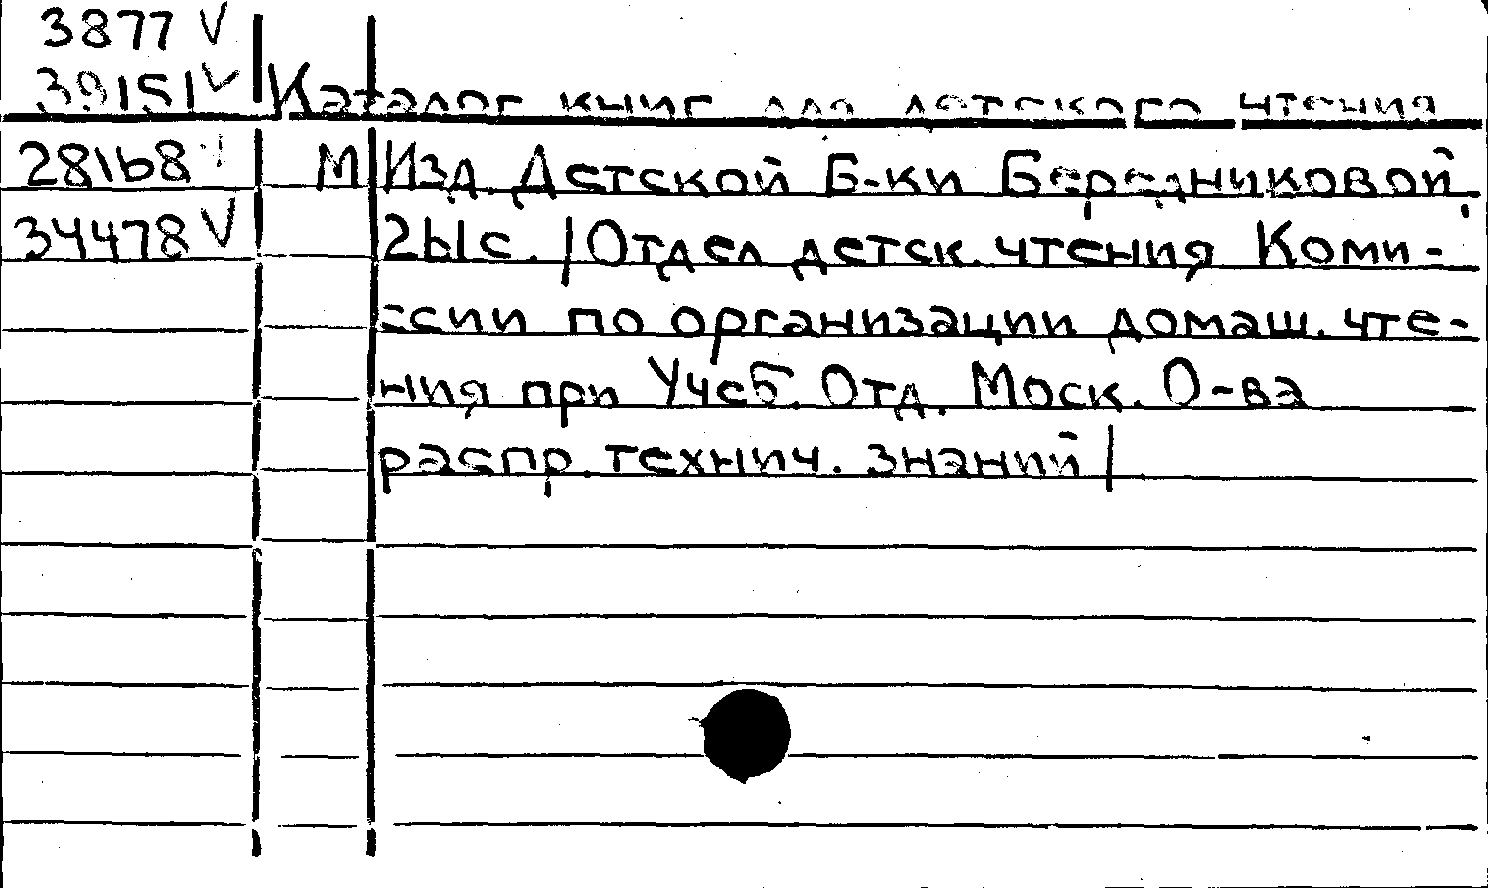 3877 V
39151 V Каталог книг для детского чтения
28168 М Изд. Детской Б-ки Бередниковой.
34478 V 2ыс. /Отдел детск. чтения Коми-
ссии по организации домаш. чте-
ния при Учеб. Отд. Моск. О-ва
распр. технич. знаний/